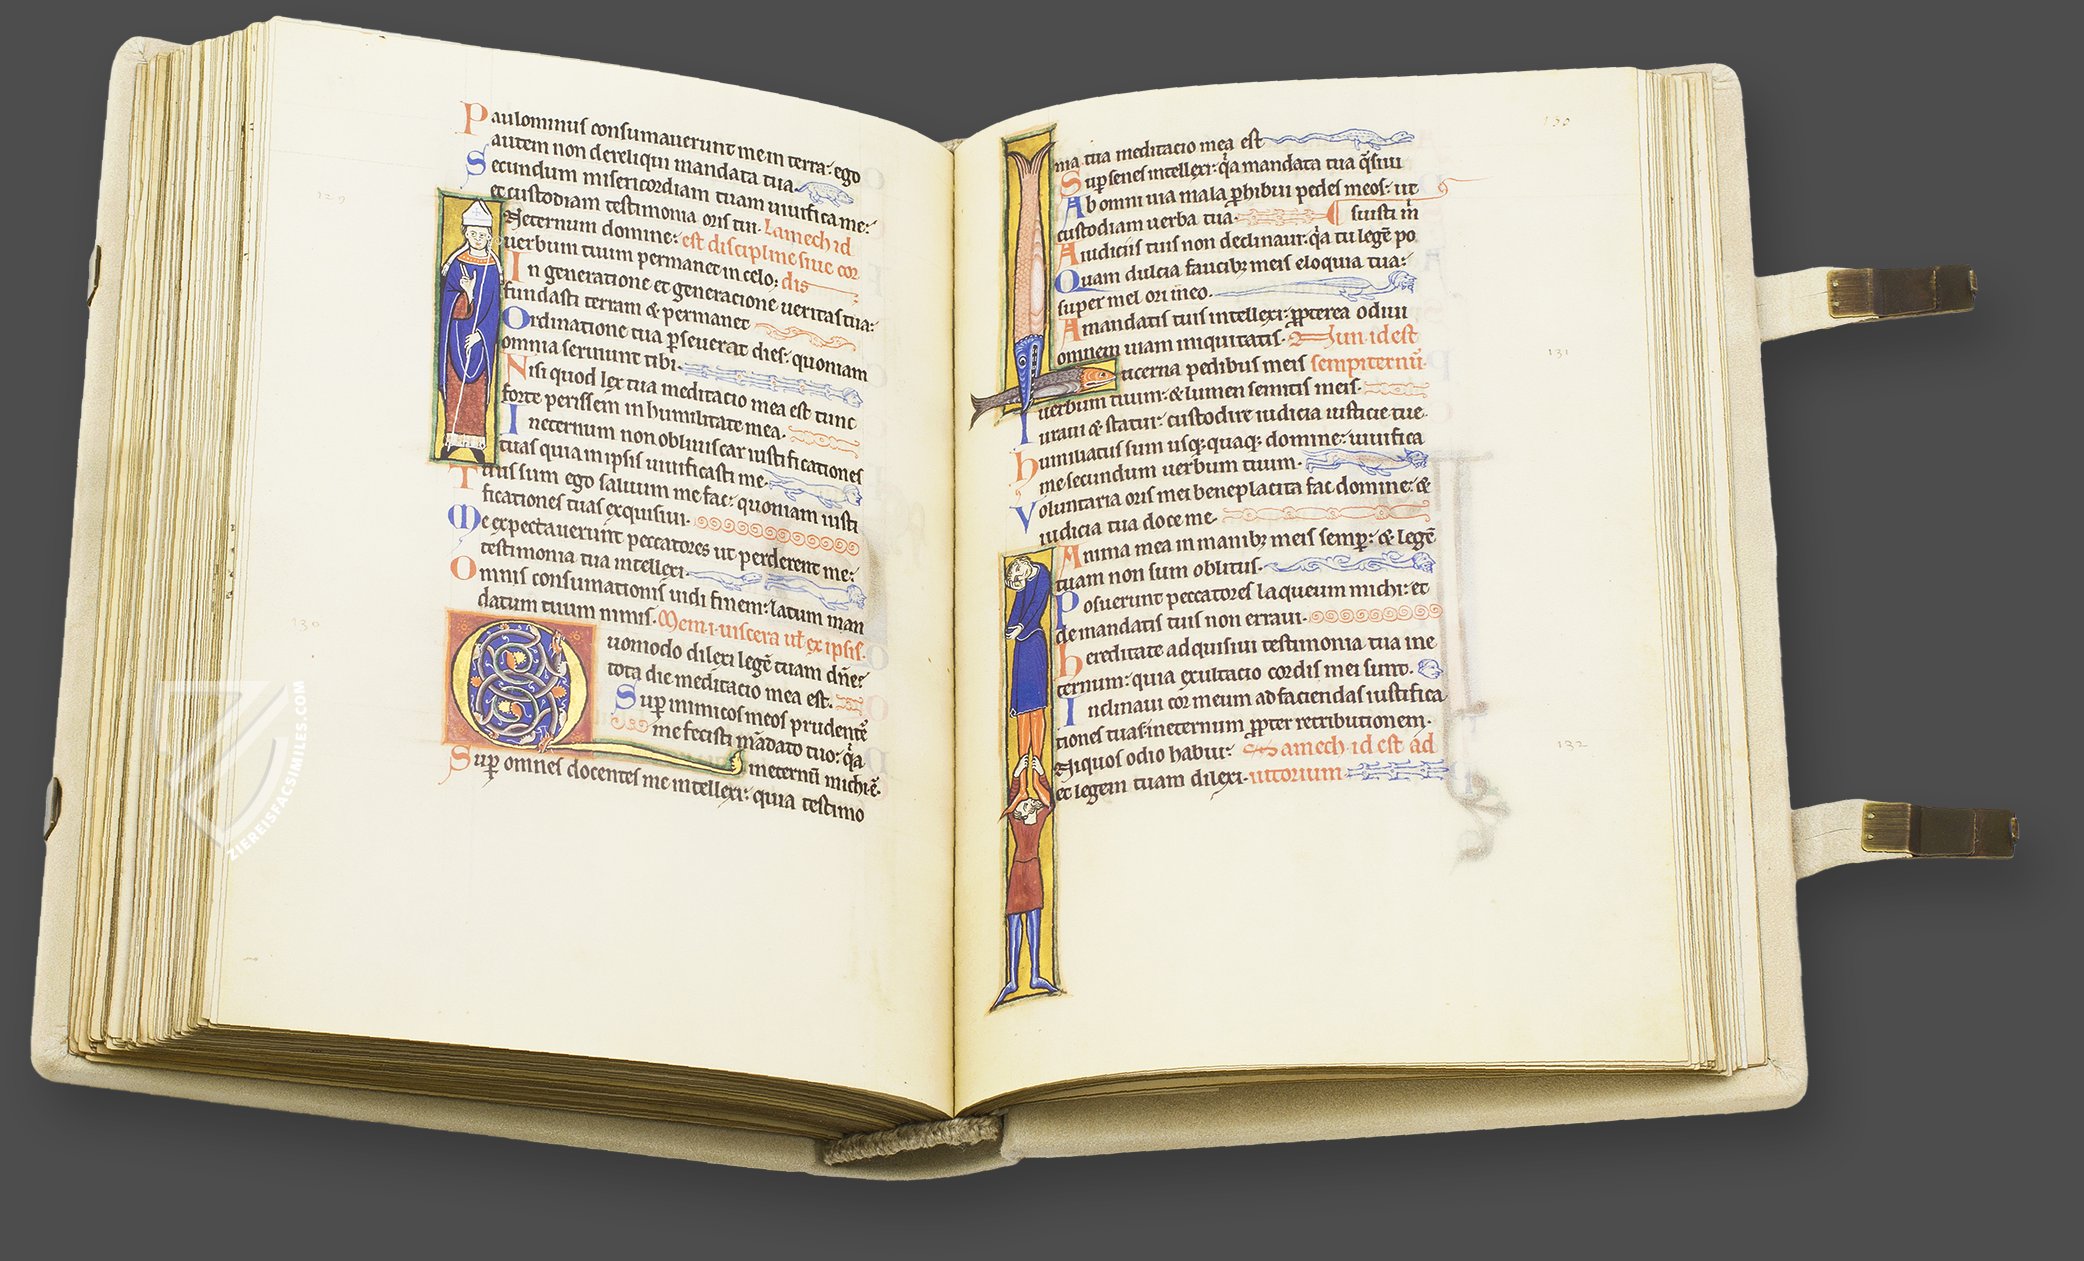 Paulominus consumauerunt me in terra: ego
autem non dereliqui mandata tua.
Secundum misericordiam tuam uiuifica me:
et custodiam testimonia oris tui. Lamech id
129
Neternum domine: est discipline siue cor
uerbum tuum permanet in celo: dis
In generatione et generacione ueritas tua:
fundasti terram & permanet
Ordinatione tua pseuerat dies: quoniam
omnia seruiunt tibi.
Nisi quod lex tua meditacio mea est tunc
forte perissem in humilitate mea.
Ineternum non obliuiscar iustificationes
tuas quia in ipsis uiuificasti me.
Tuus sum ego saluum me fac: quoniam iusti
ficationes tuas exquisiui.
Me expectauerunt peccatores ut perderent me:
testimonia tua intellexi.
Omnis consumationis uidi finem: latum man
datum tuum nimis. Mem .i. uiscera ul ex ipsis.
130
Quomodo dilexi legē tuam dñe:
tota die meditacio mea est.
Sup inimicos meos prudentē
me fecisti mādato tuo: qa
ineternū michi ē.
Sup omnes docentes me intellexi: quia testimo
nia tua meditacio mea est
Sup senes intellexi: qa mandata tua q̄siui
Ab omni uia mala phibui pedes meos: ut
custodiam uerba tua. suisti m
A iudiciis tuis non declinaui: qa tu legē po
Quam dulcia faucib; meis eloquia tua:
super mel ori meo.
A mandatis tuis intellexi: ppterea odiui
omnem uiam iniquitatis. Nun. id est
131
Lucerna pedibus meis sempiternū.
uerbum tuum: & lumen semitis meis.
Iuraui & statui: custodire iudicia iusticie tue.
humiliatus sum usq; quaq; domine: uiuifica
me secundum uerbum tuum.
Voluntaria oris mei beneplacita fac domine: &
iudicia tua doce me.
Anima mea in manib; meis semp: & legē
tuam non sum oblitus.
Posuerunt peccatores laqueum michi: et
de mandatis tuis non erraui.
hereditate adquisiui testimonia tua ine
ternum: quia exultacio cordis mei sunt.
Inclinaui cor meum ad faciendas iustifica
tiones tuas: ineternum ppter retributionem.
132
Iniquos odio habui: Samech. id est ad
et legem tuam dilexi. iutorium
ZIEREISFACSIMILES.COM